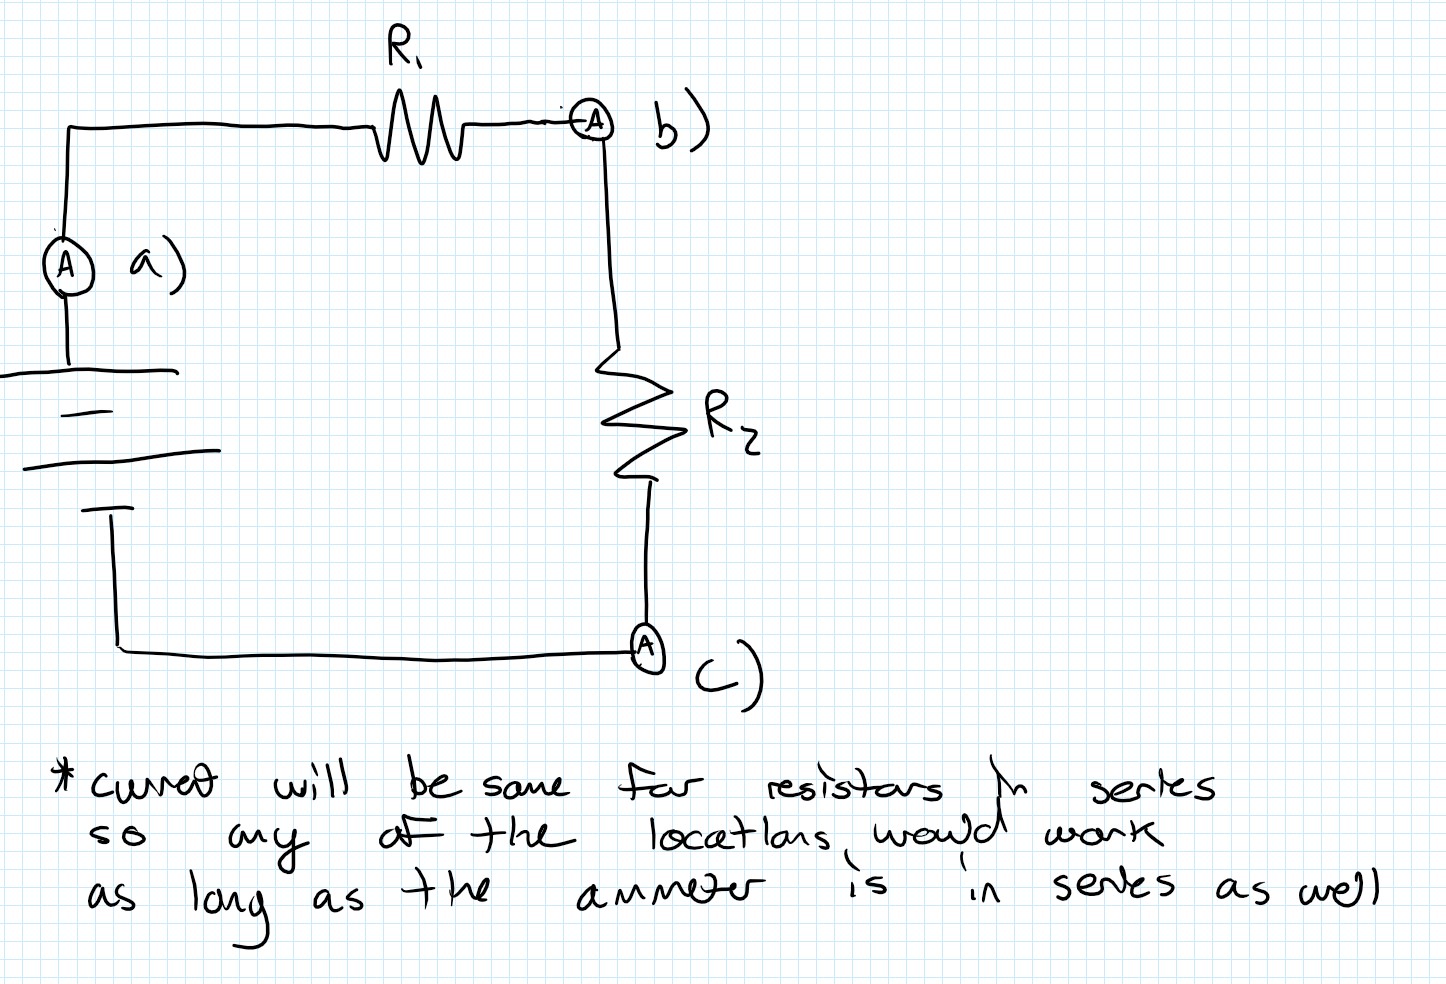 R₁
A
b)
A
a)
R₂
A
c)
* current will be same for resistors in series
so any of the locations would work
as long as the ammeter is in series as well